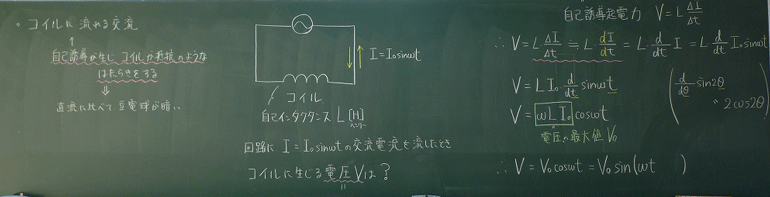 ・コイルに流れる交流
↑
自己誘導が生じ、コイルが抵抗のような
はたらきをする
⇓
直流に比べて豆電球が暗い
I = I₀sinωt
コイル
自己インダクタンス L [H]
ヘンリー
回路に I = I₀sinωt の交流電流を流したとき
コイルに生じる電圧Vは？
自己誘導起電力 V = L ΔI/Δt
∴ V = L ΔI/Δt ≒ L dI/dt = L・d/dt I = L d/dt I₀sinωt
V = L I₀ d/dt sinωt
V = ωLI₀ cosωt
電圧の最大値 V₀
( d/dθ sin2θ
〃 2cos2θ )
∴ V = V₀cosωt = V₀ sin(ωt )